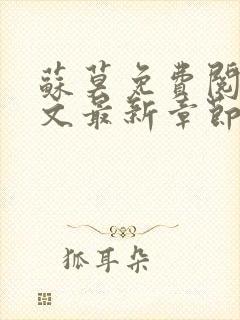 蘇莫免費閱
文最新章節
狐耳朵